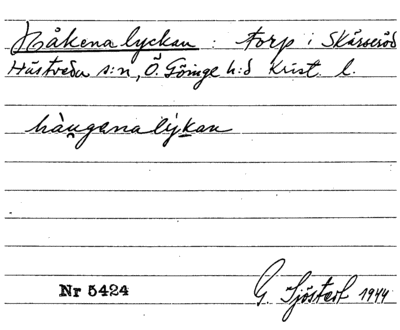 Håkenalyckan : torp i Skärseröd
Hästveda s:n, Ö. Göinge h:d Krist. l.
hàu̯genalýkan
Nr 5424
G. Sjöstedt 1944